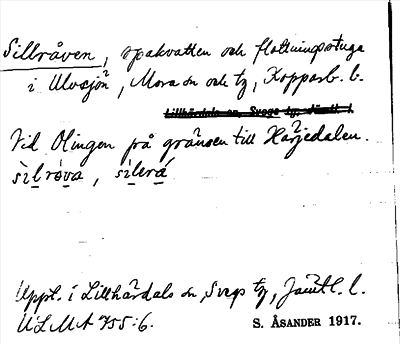 Sillråven, spakvatten och flottningsstuga
i Ulvsjön, Mora sn och tg, Kopparb. l.
Lillhärdals sn, Svegs tg, Jämtl. l.
Vid Olingen på gränsen till Härjedalen.
sìlrova, sìlerá
Uppt. i Lillhärdals sn, Svegs tg, Jämtl. l.
ULMA 755:6. S. ÅSANDER 1917.